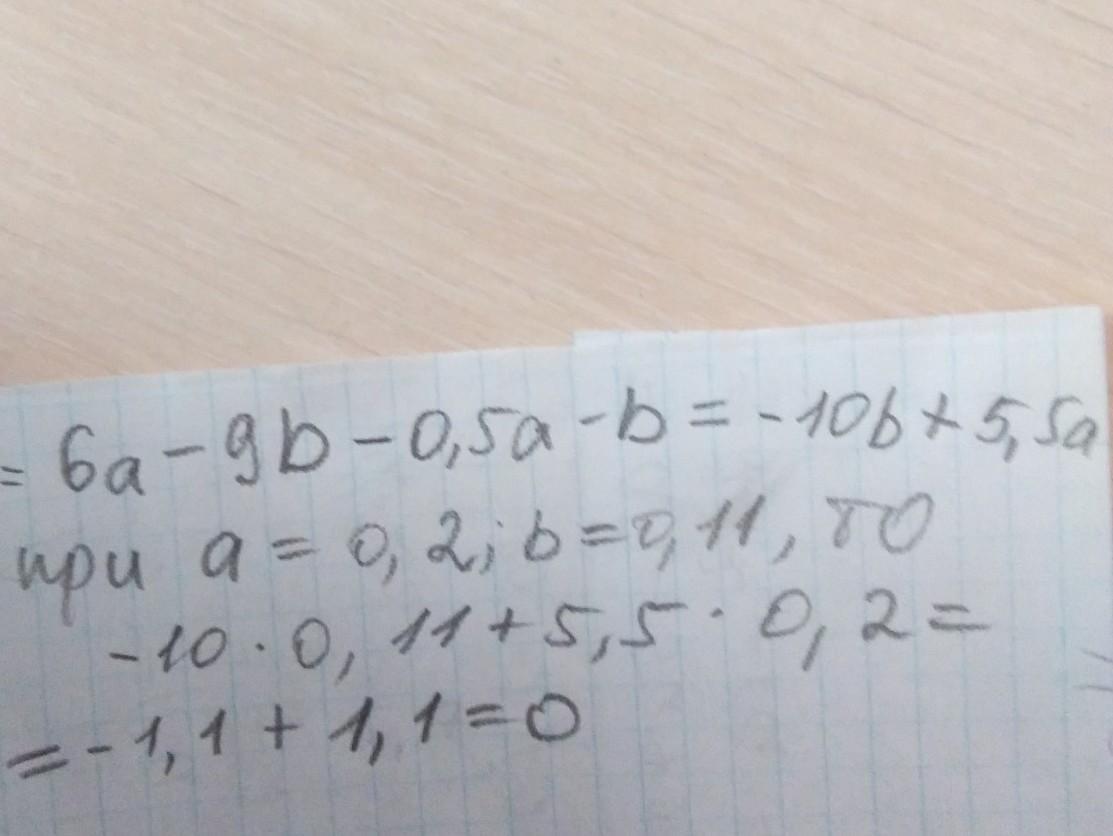 = 6a - 9b - 0,5a - b = -10b + 5,5a
при a = 0,2; b = 0,11, то
-10 · 0,11 + 5,5 · 0,2 =
= -1,1 + 1,1 = 0